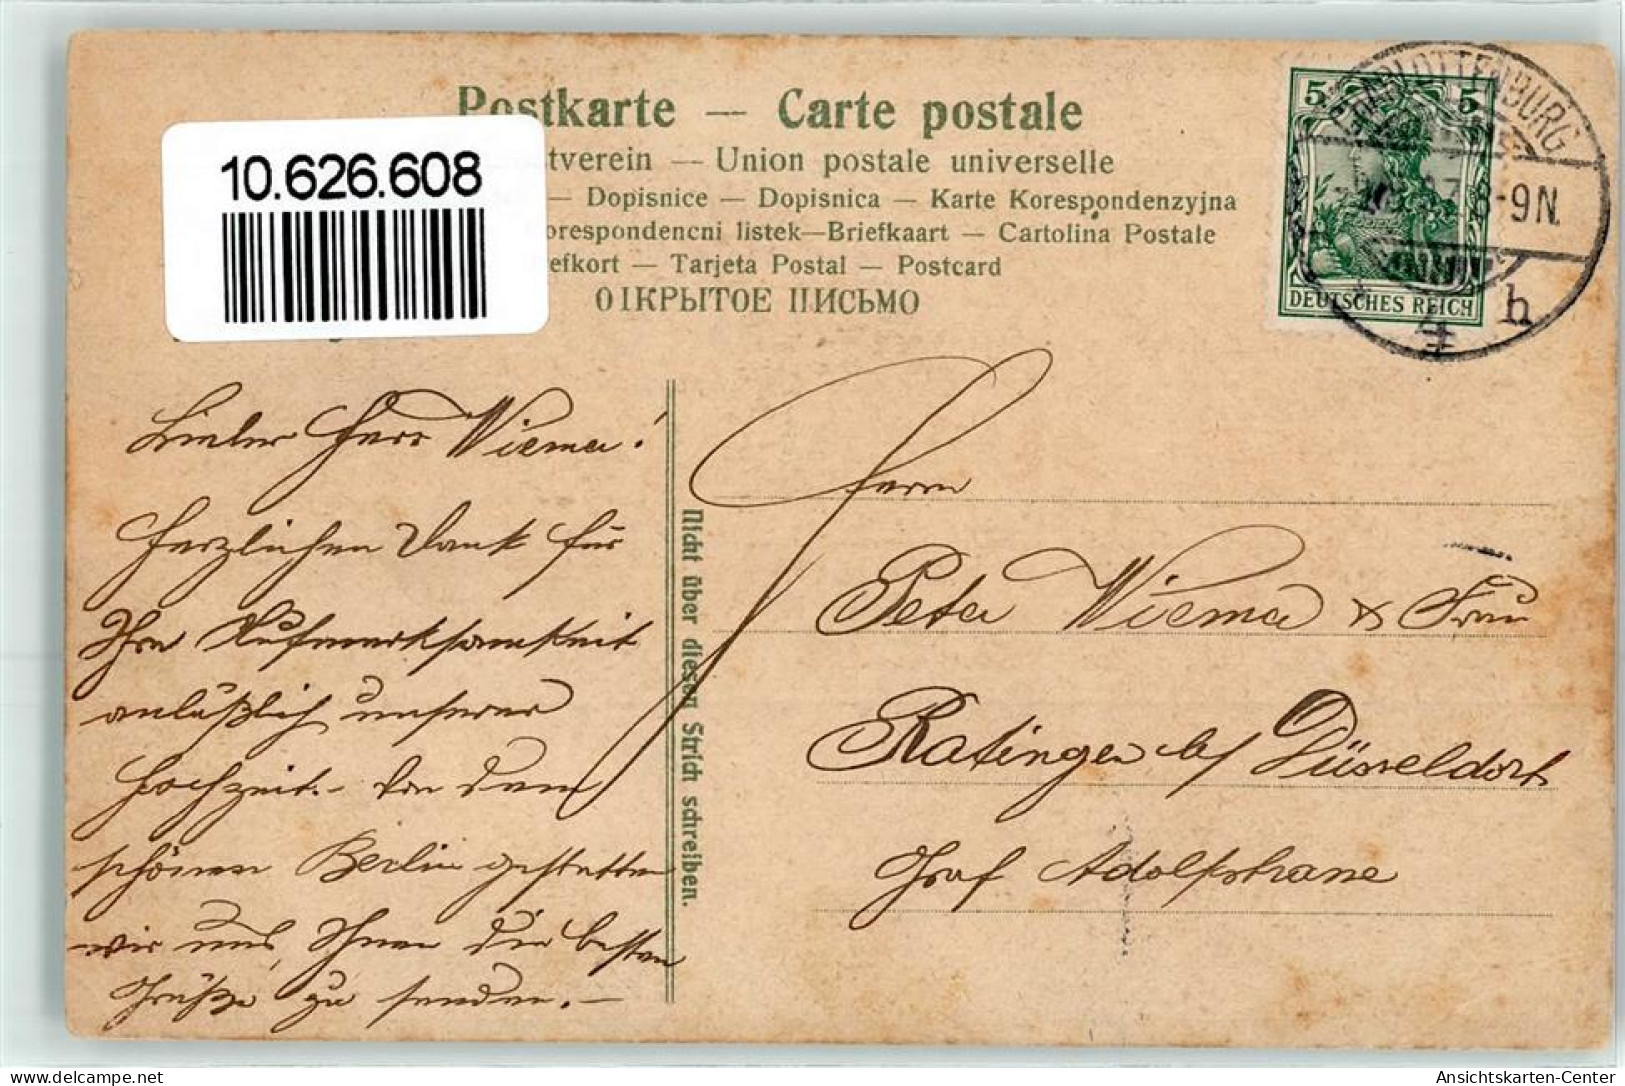 Postkarte — Carte postale
tverein — Union postale universelle
— Dopisnice — Dopisnica — Karte Korespondenzyjna
orespondencni listek—Briefkaart — Cartolina Postale
efkort — Tarjeta Postal — Postcard
ОТКРЫТОЕ ПИСЬМО
10.626.608
5 5
DEUTSCHES REICH
CHARLOTTENBURG
8-9N.
4 h
Lieber Herr Wiema!
Herzlichen Dank für
Ihre Aufmerksamkeit
anläßlich unserer
Hochzeit. – Von dem
schönen Berlin gestatten
wir uns, Ihnen die besten
Grüße zu senden. –
Nicht über diesen Strich schreiben.
Herrn
Peter Wiema & Frau
Ratingen b/ Düsseldorf
Graf Adolfstrasse
delcampe.net
Ansichtskarten-Center